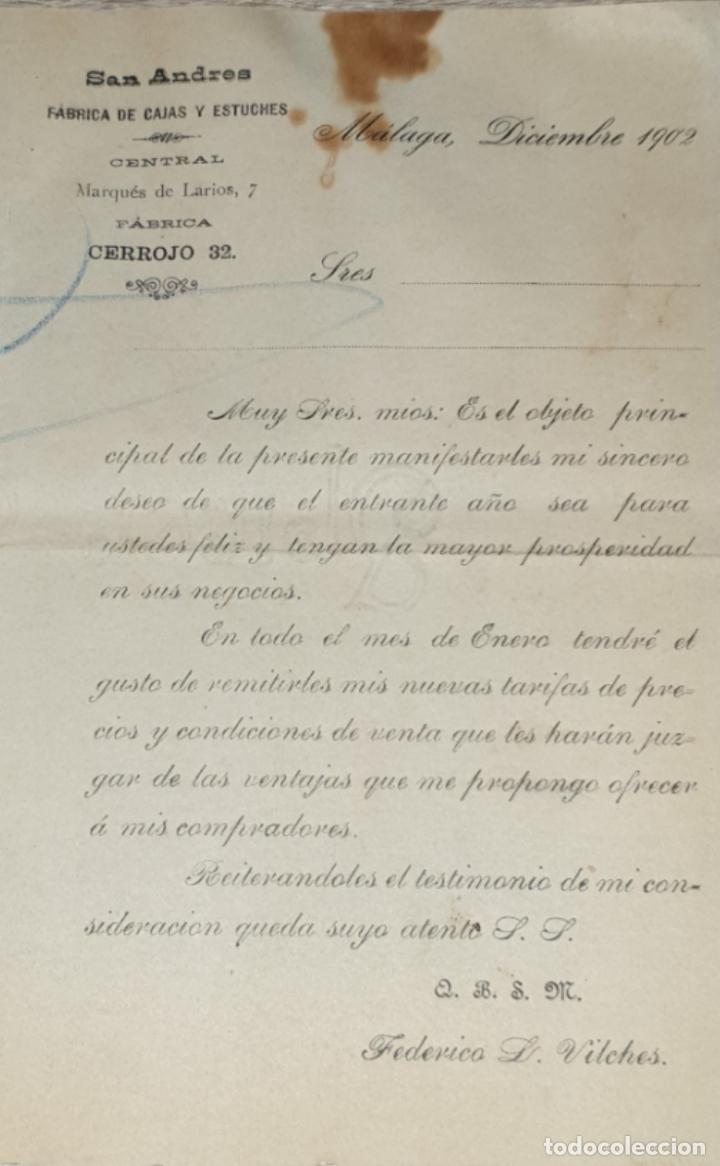 San Andres
FÁBRICA DE CAJAS Y ESTUCHES
CENTRAL
Marqués de Larios, 7
FÁBRICA
CERROJO 32.
Málaga, Diciembre 1902
Sres
Muy Sres. mios: Es el objeto prin-
cipal de la presente manifestarles mi sincero
deseo de que el entrante año sea para
ustedes feliz y tengan la mayor prosperidad
en sus negocios.
En todo el mes de Enero tendré el
gusto de remitirles mis nuevas tarifas de pre-
cios y condiciones de venta que les harán juz-
gar de las ventajas que me propongo ofrecer
á mis compradores.
Reiterandoles el testimonio de mi con-
sideracion queda suyo atento S. S.
Q. B. S. M.
Federico L. Vilches.
todocoleccion